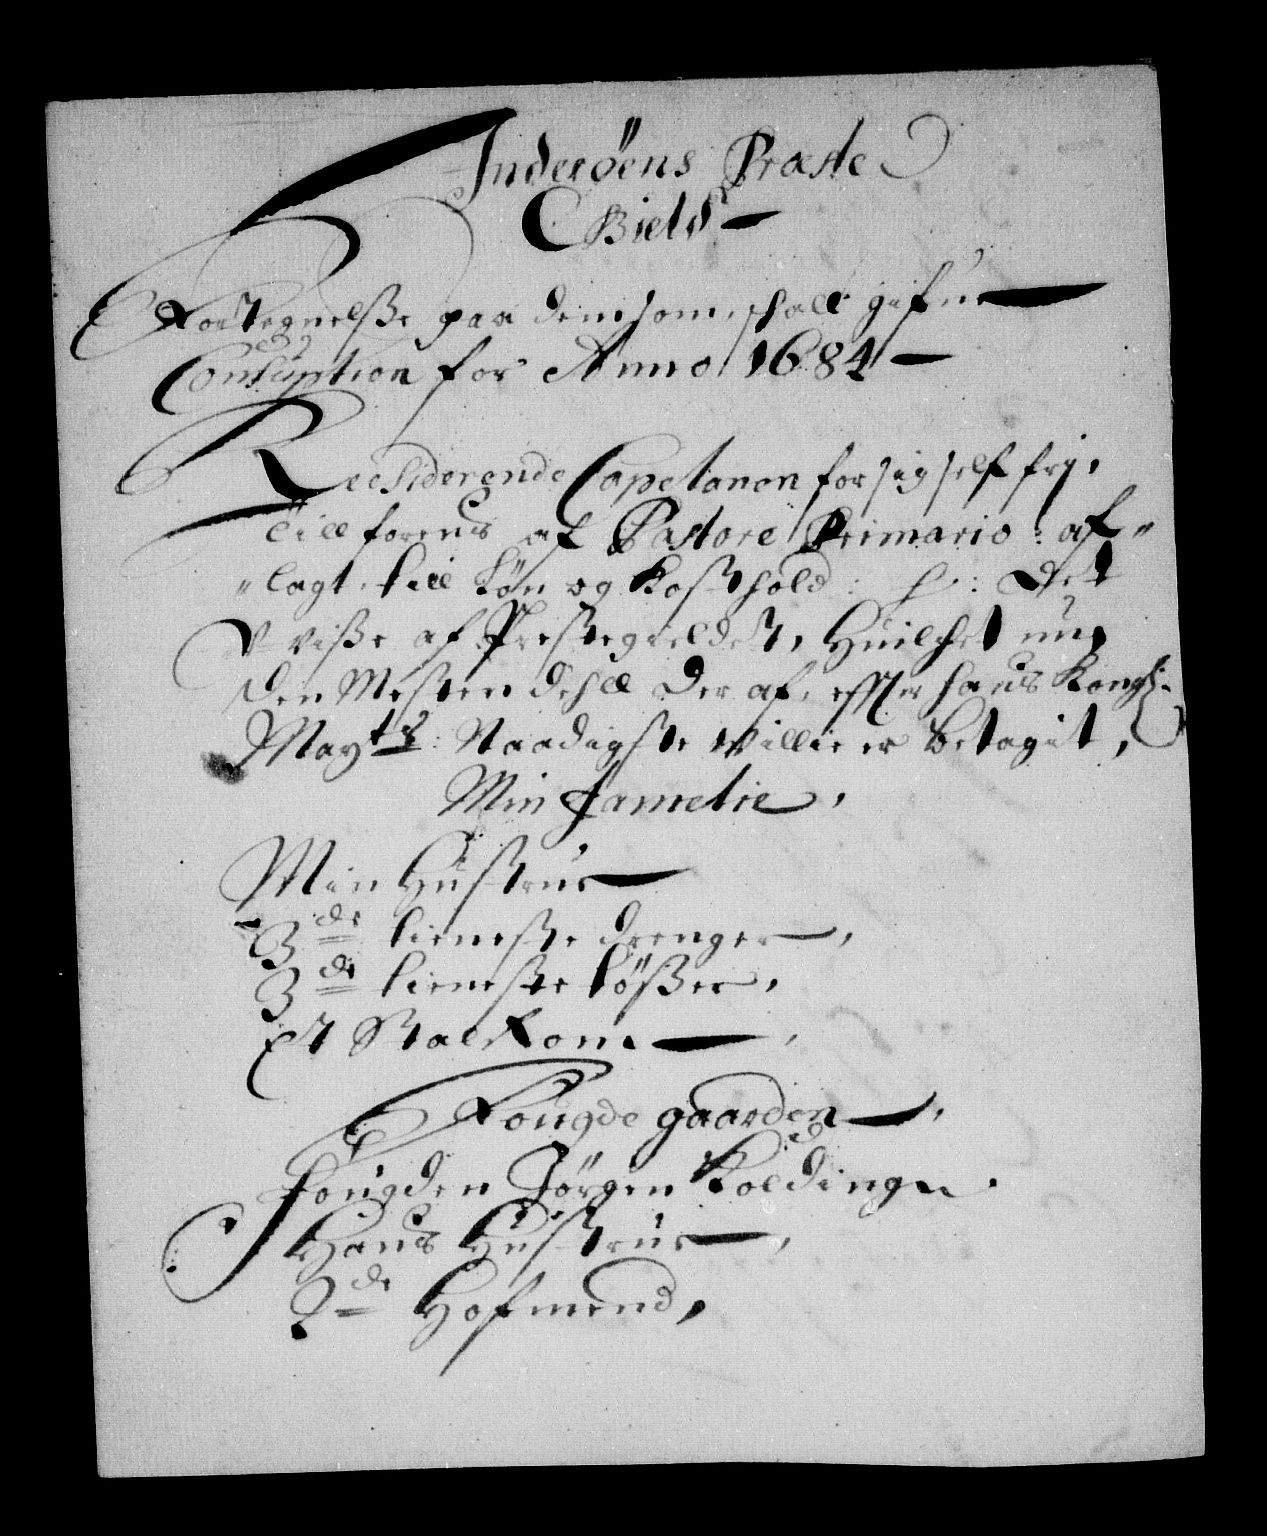 Inderöens Præste
Gield
Fortegnelsße paa dem som schall gifue
Consuption for Anno 1684
Recsiderende Capelanen for sig self frj,
Till forens af Pastore Primario: af„
„lagt till Løn og Kosthold: det
V-visße af Prestegieldet, Huilchet nu
den Mesten dehll der af, effter hans Kongl:
Mayts: Naadigste Villie er betagit,
Min Famelie,
Min Hustrue
3de tienneste drenger,
3de tienneste tøßer,
Et Stalkone,
Fougde gaarden,
Fougden Jörgen Kolding
Hans Hustrue,
2de Hofmend,